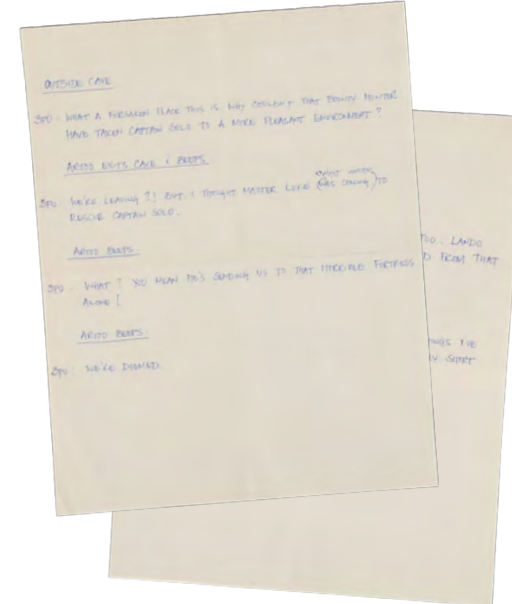 OUTSIDE CAVE
3PO: WHAT A FORSAKEN PLACE THIS IS. WHY COULDN'T THAT BOUNTY HUNTER
HAVE TAKEN CAPTAIN SOLO TO A MORE PLEASANT ENVIRONMENT?
ARTOO EXITS CAVE & BEEPS.
3PO: WE'RE LEAVING?! BUT I THOUGHT MASTER LUKE WAS COMING TO
RESCUE CAPTAIN SOLO.
ARTOO BEEPS.
3PO: WHAT? YOU MEAN HE'S SENDING US TO THAT HORRIBLE FORTRESS
ALONE!
ARTOO BEEPS.
3PO: WE'RE DOOMED.
TOO. LANDO
D FROM THAT
I'VE
START